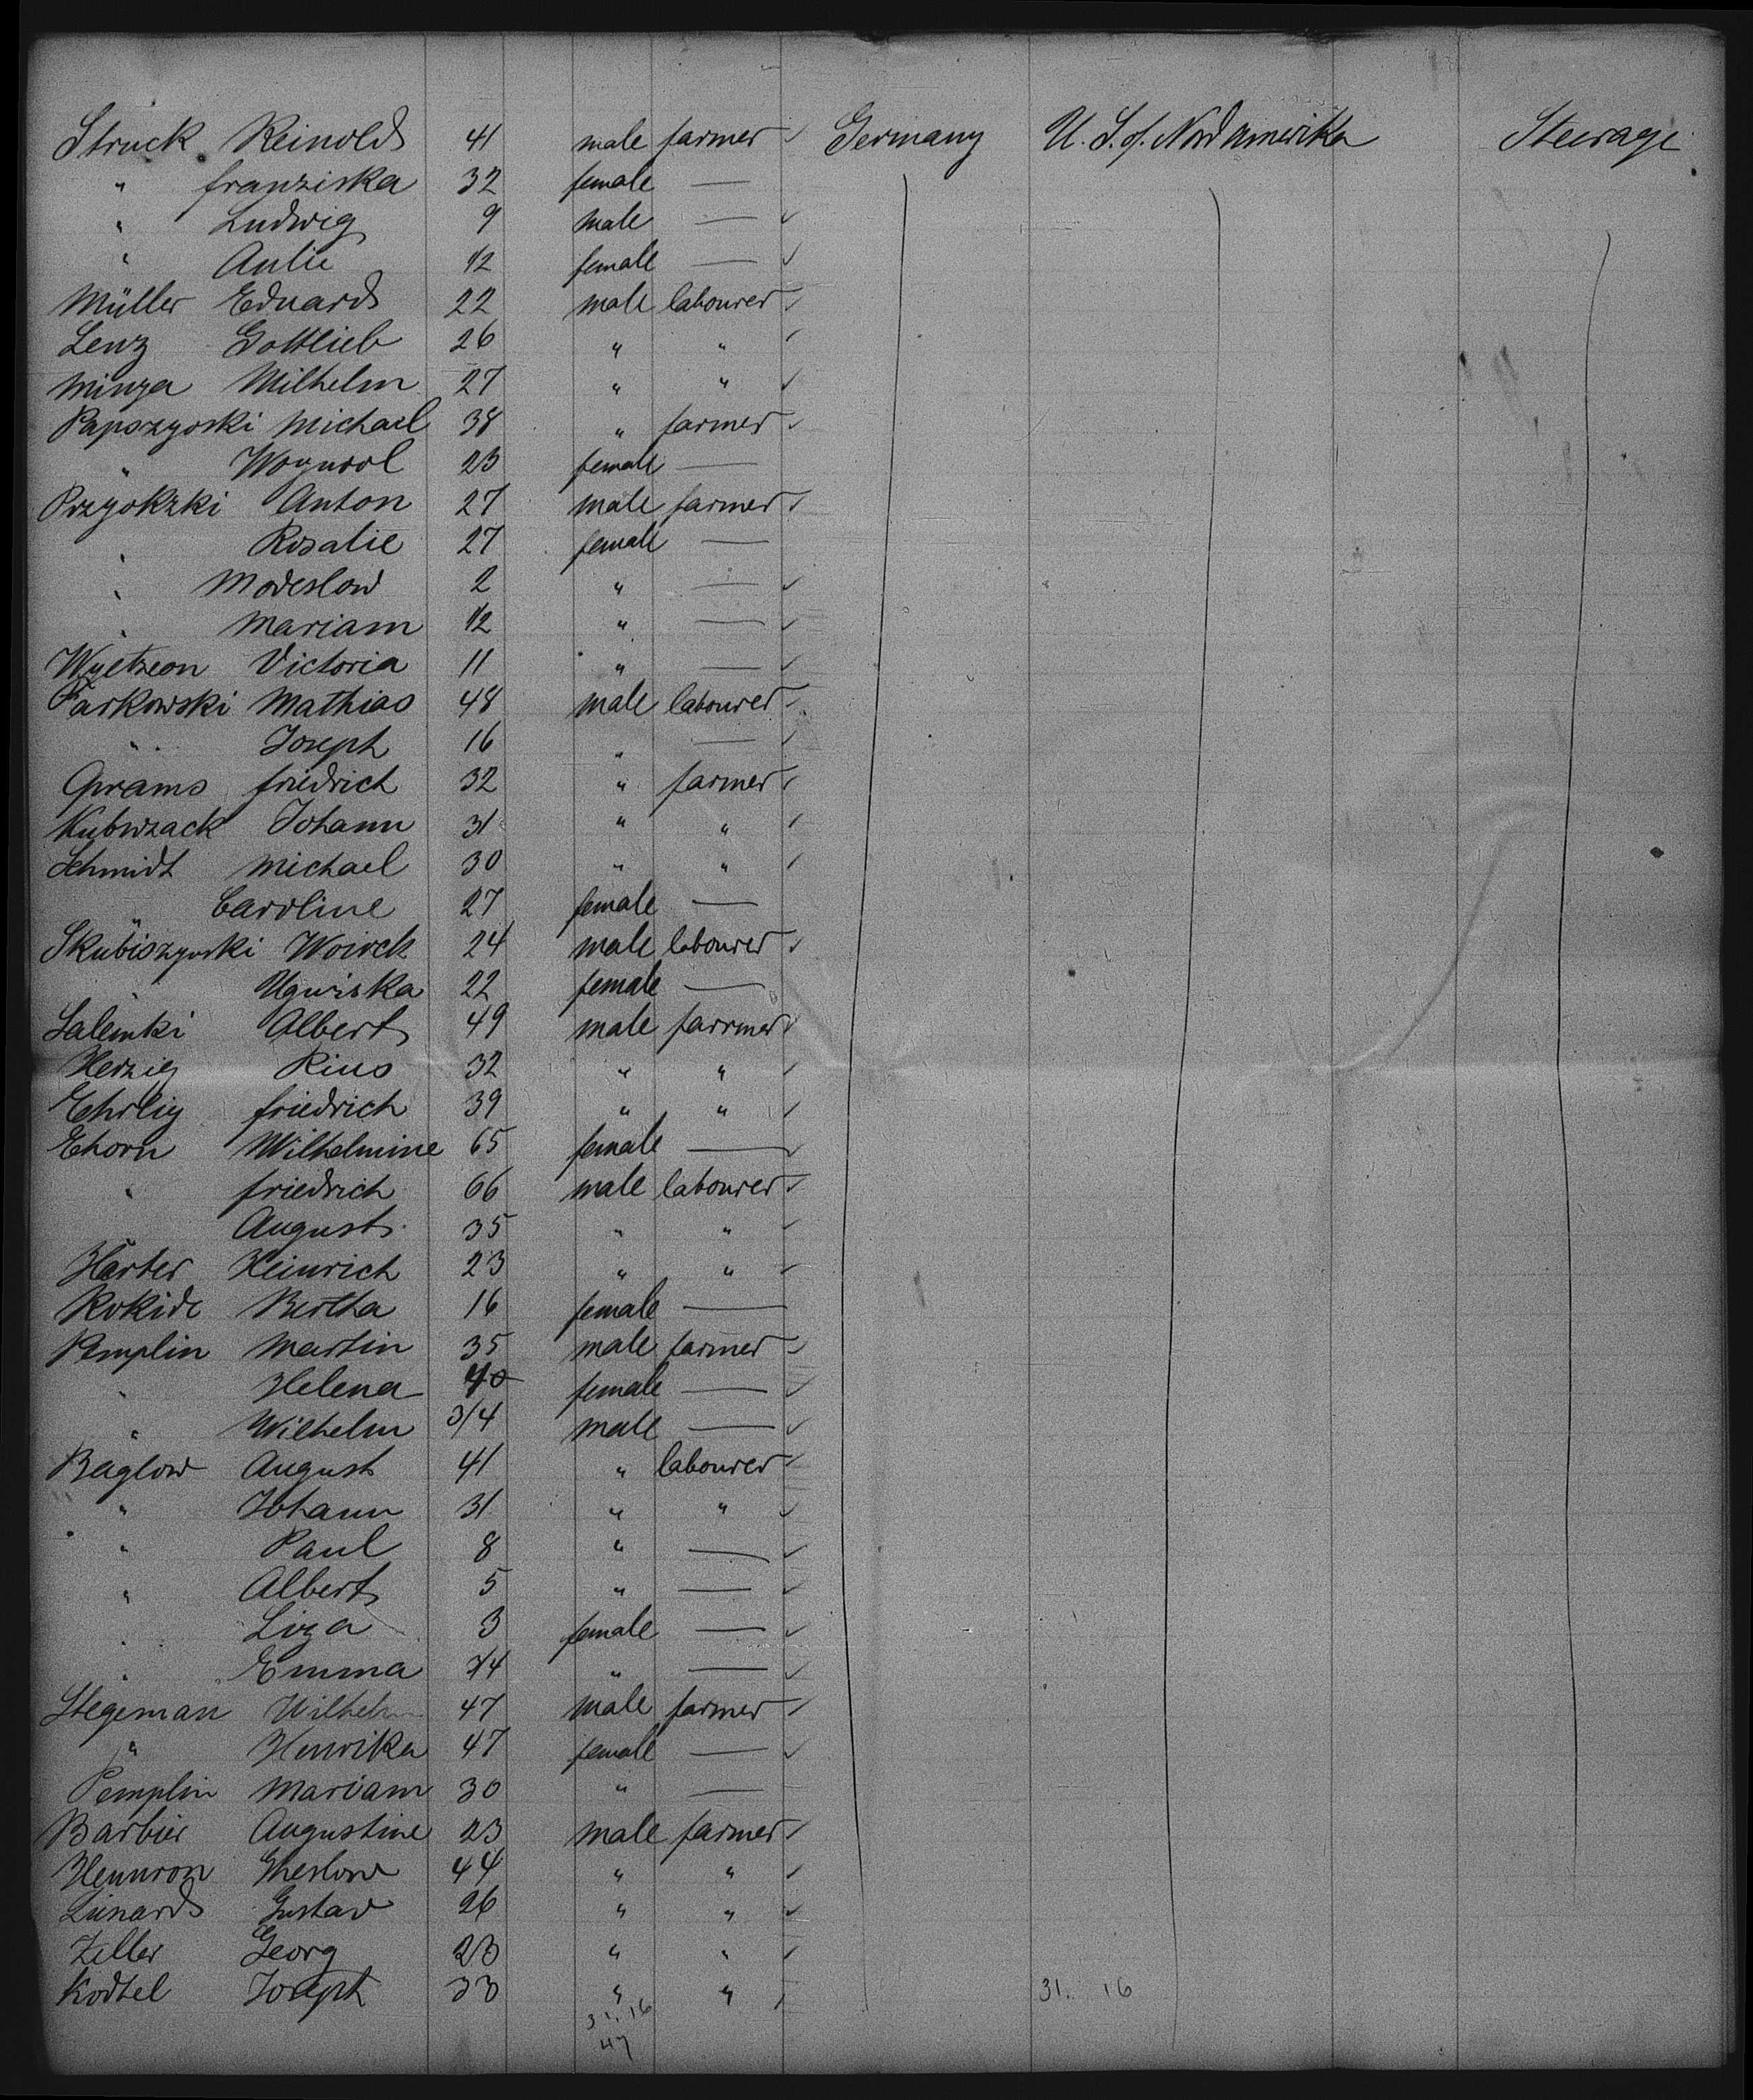 Struck Reinold 41 male farmer ✓ Germany U. S. of. Nord Amerika Steerage
" Franziska 32 female —
" Ludwig 9 male — ✓
" Aulie 1/2 female — ✓
Müller Eduard 22 male labourer ✓
Lenz Gottlieb 26 " " ✓
Minza Wilhelm 27 " " ✓
Papszyoski Michael 38 " farmer ✓
" 23 female —
Przyokzki Anton 27 male farmer ✓
" Rosalie 27 female —
" Modeslow 2 " — ✓
" Mariam 1/2 " — ✓
Wyetzeon Victoria 11 " — ✓
Farkowski Mathias 48 male labourer ✓
" Joseph 16 " — ✓
Grams Friedrich 32 " farmer ✓
Kubwzack Johann 31 " " ✓
Schmidt Michael 30 " " ✓
" Caroline 27 female —
Skubiszynski 24 male labourer ✓
" 22 female —
Salemki Albert 49 male farrmer ✓
Herzig 32 " " ✓
Ehrlig Friedrich 39 " " ✓
Ehorn Wilhelmine 65 female — ✓
" Friedrich 66 male labourer ✓
August 35 " " ✓
Härter Heinrich 23 " " ✓
Rokide Bertha 16 female —
Pemplin Martin 35 male farmer ✓
" Helena 40 female — ✓
" Wilhelm 3/4 male — ✓
Baglow August 41 " labourer ✓
" Johann 31 " " ✓
" Paul 8 " — ✓
" Albert 5 " — ✓
" Liza 3 female — ✓
" Emma " — ✓
Stegeman Wilhelm 47 male farmer ✓
" Henrika 47 female — ✓
Pemplin Mariam 30 " —
Barbier Augustine 23 male farmer ✓
Hennron 44 " " ✓
Lienard Gustav 26 " " ✓
Zeller Georg 23 " " ✓
Kodtel Joseph 33 " " ✓ 31. 16
31. 16
47